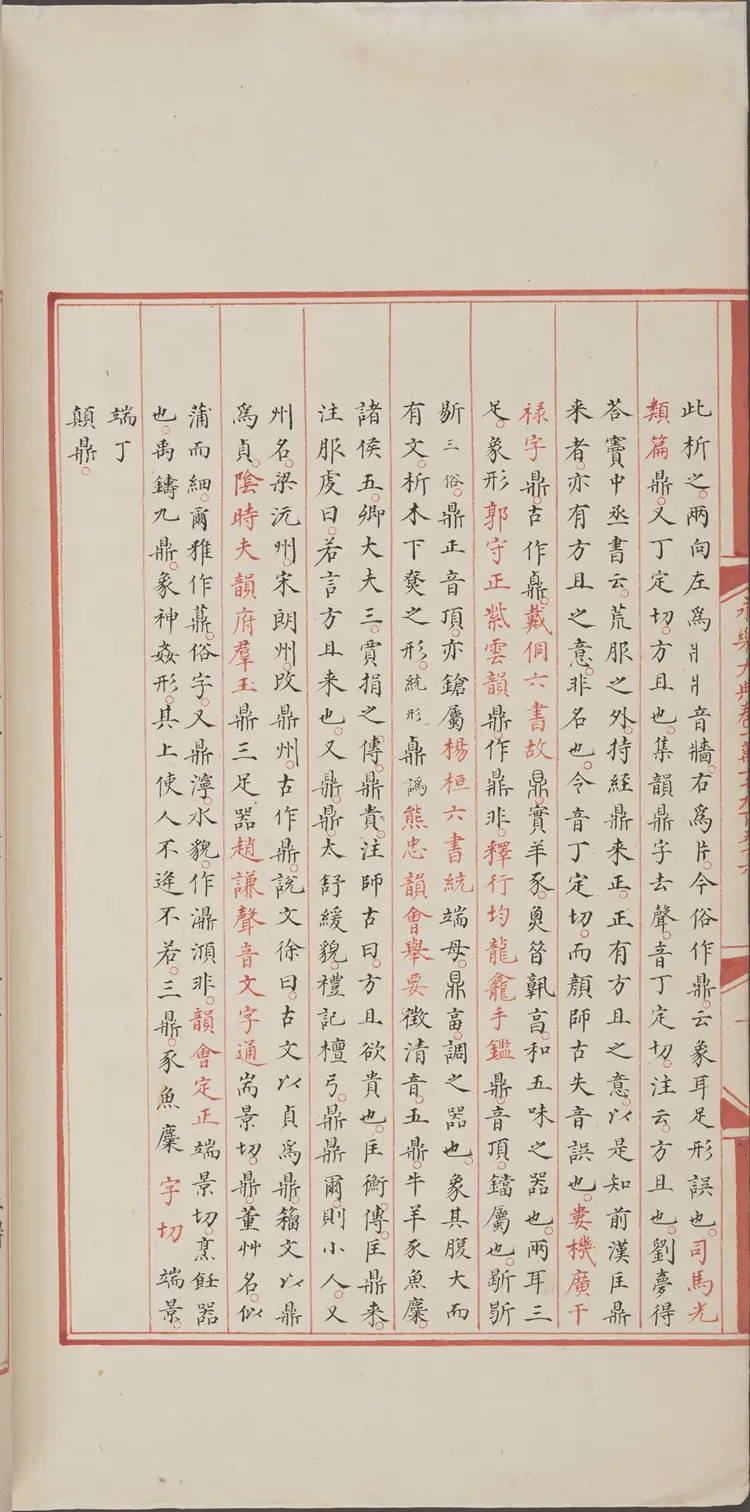 此析之。兩向左爲爿爿音牆。右爲片。今俗作鼎。云象耳足形誤也。司馬光
類篇鼎。又丁定切。方且也。集韻鼎字去聲。音丁定切。注云。方且也。劉夢得
荅竇中丞書云。荒服之外。持經鼎来正。正有方且之意。以是知前漢匡鼎
来者。亦有方且之意。非名也。今音丁定切。而顏師古失音誤也。婁機廣干
禄字鼎。古作鼑。戴侗六書故鼎。實羊豕。奠曶𩰫亯。和五味之器也。兩耳三
足。象形郭守正紫雲韻鼎。作鼎非。釋行均龍龕手鑑鼎。音頂。鐺屬也。斵斵
斵三俗。鼎正音頂。亦鎗屬楊桓六書統端母。鼎畜。調之器也。象其腹大而
有文。析木下㸑之形。統形鼑譌熊忠韻會舉要徵清音。五鼎。牛羊豕魚麋。
諸侯五。卿大夫三。賈捐之傳。鼎貴。注師古曰。方且欲貴也。匡衡傳。匡鼎来。
注服虔曰。若言方且来也。又鼎。鼎。太舒緩貌。禮記檀弓。鼎鼎爾。則小人。又
州名。梁沅州。宋朗州。攺鼎州。古作鼎。說文徐曰。古文以貞爲鼎。籀文以鼎
爲貞。陰時夫韻府羣玉鼎三足器趙謙聲音文字通耑景切。鼎董艸名。似
蒲而細。爾雅作薡。俗字。又鼎濘。水貌。作濎㴿非。韻會定正端景切。烹飪器
也。禹鑄九鼎。象神姦形。具上使人不逄不若。三鼎。豕魚麋 字切 端景。
端丁
顛鼎。